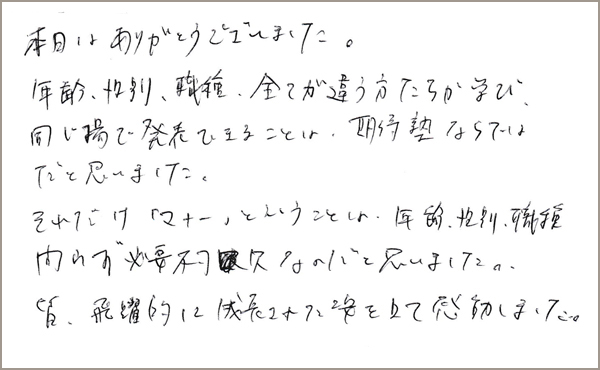 本日はありがとうございました。
年齢、性別、職種、全てが違う方たちが学び、
同じ場で発表できることは、期待塾ならでは
だと思いました。
それだけ「マナー」ということは、年齢、性別、職種
問わず必要不可欠なのだと思いました。
皆、飛躍的に成長された姿を見て感動しました。